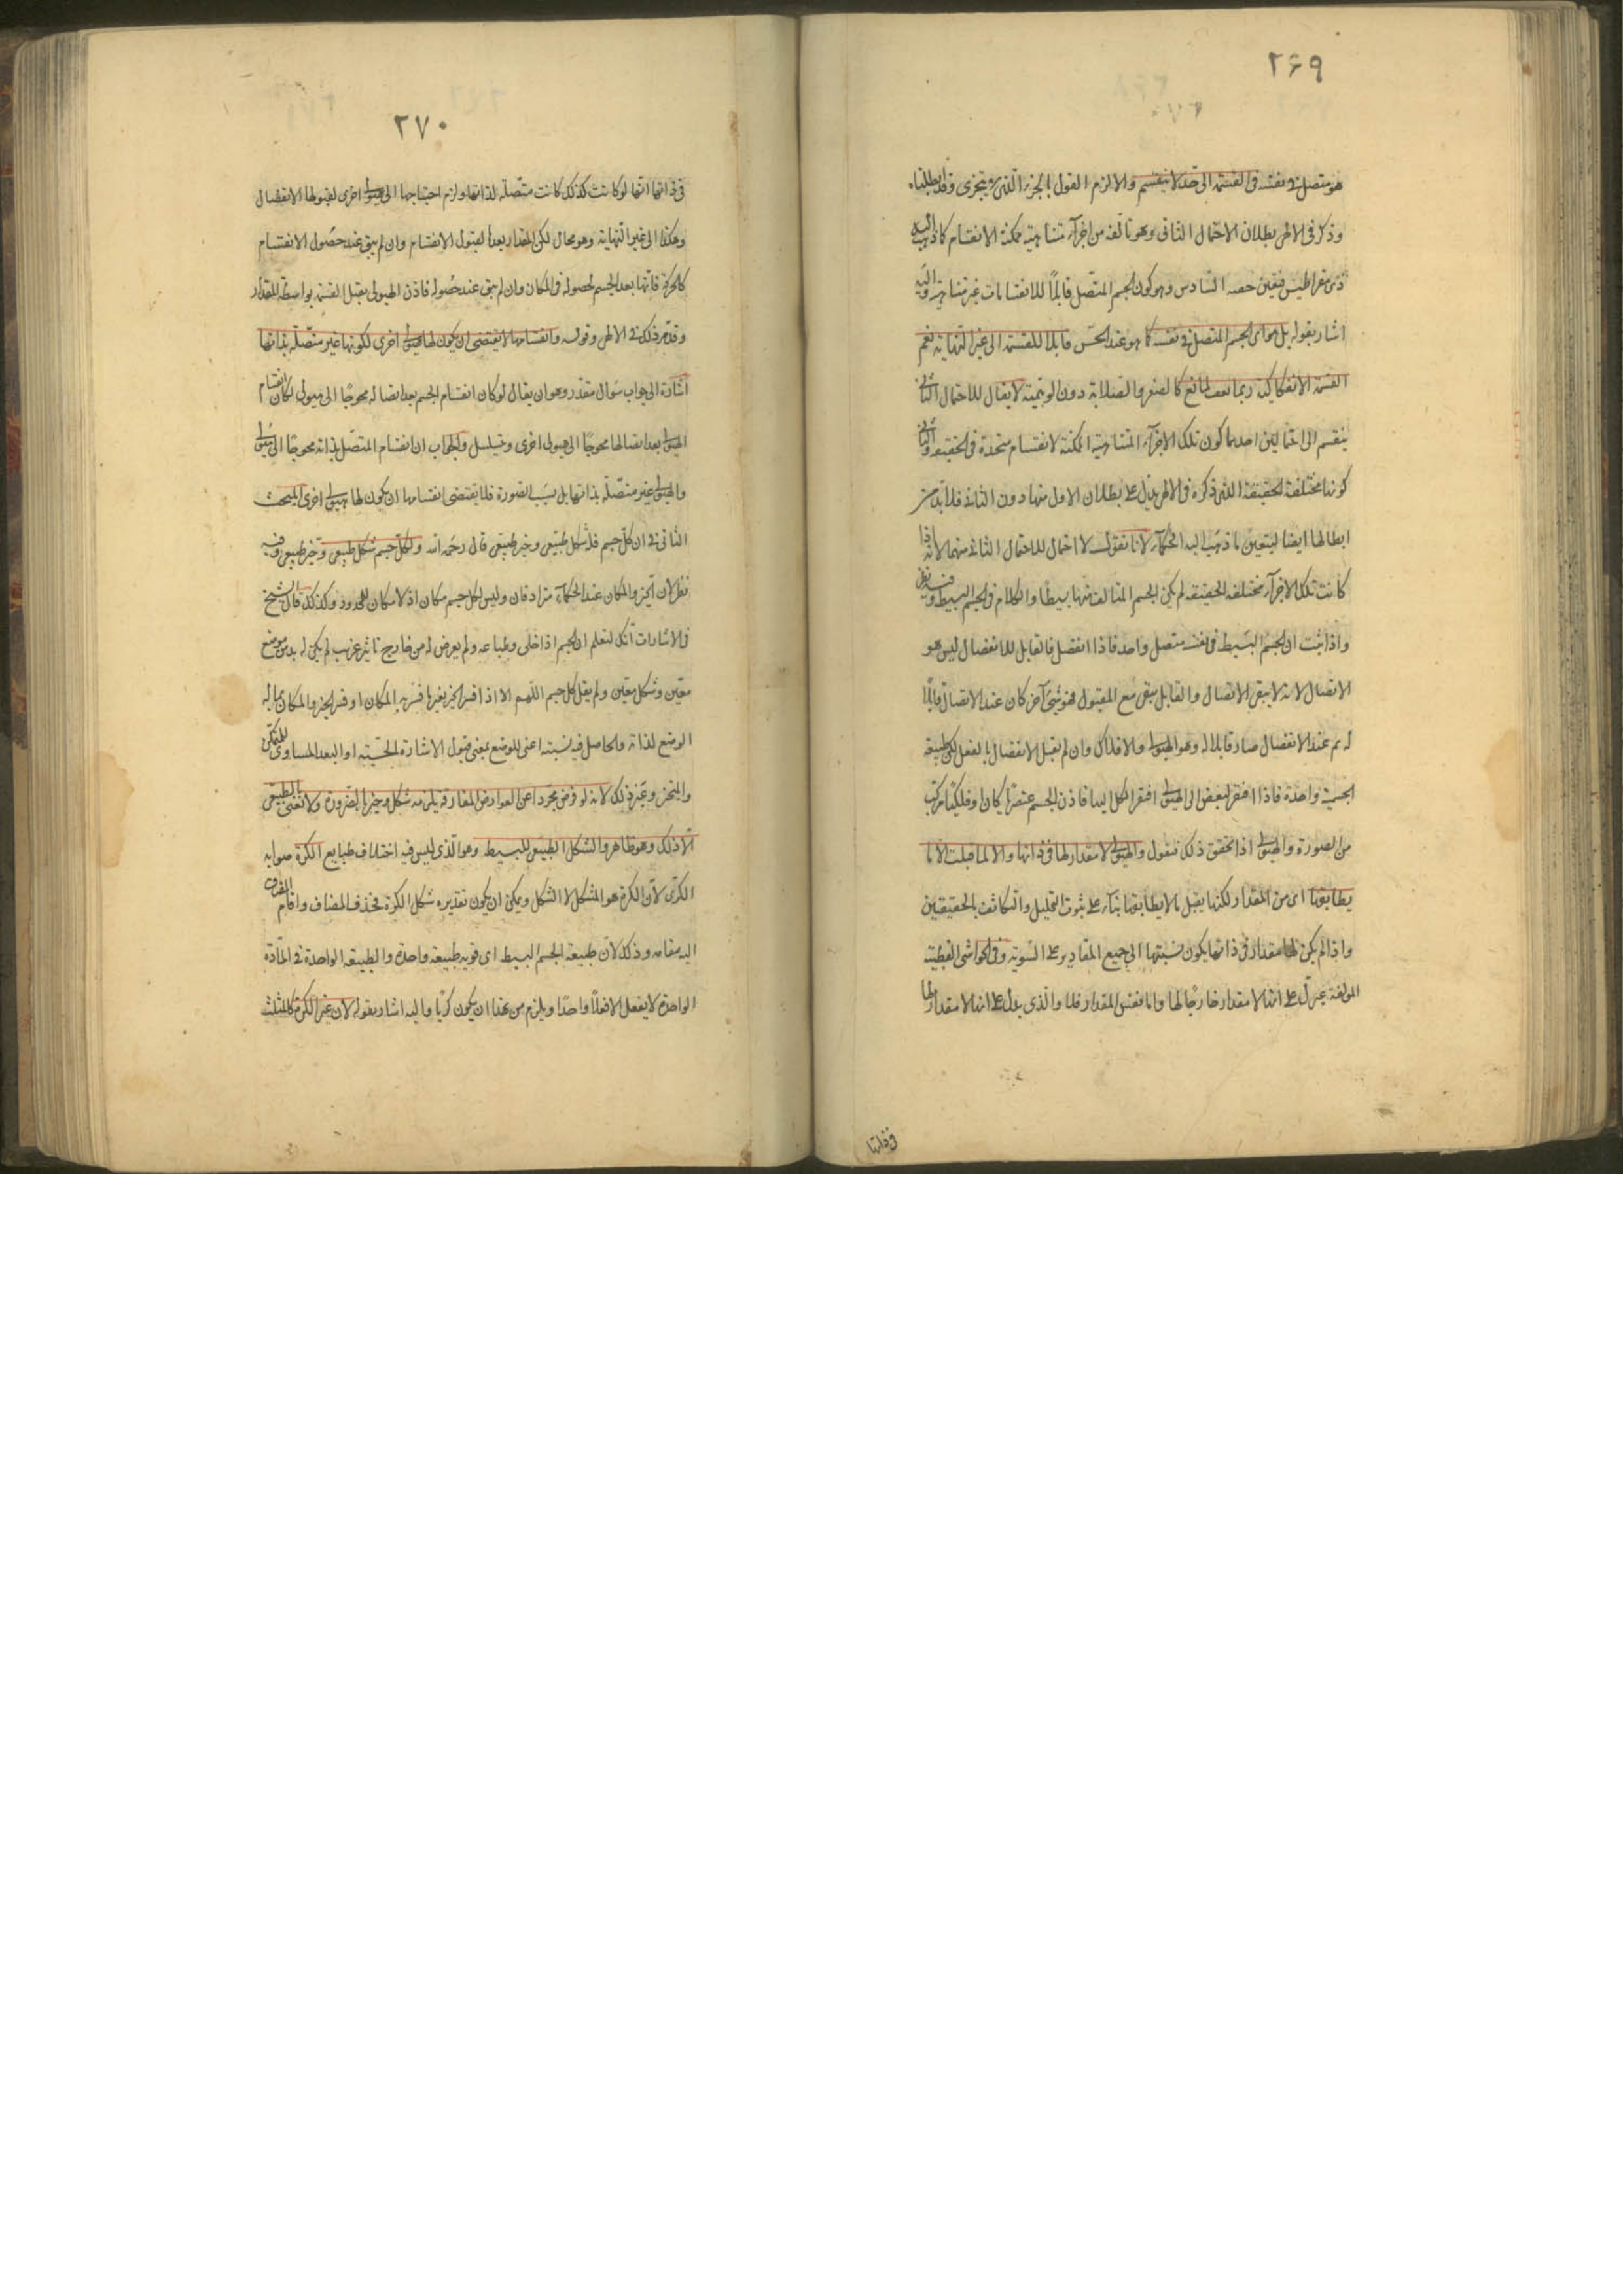 ٢۶٩
هو متصل فى نفسه فى القسمة الى حد لا ينقسم والا لزم القول بالجزء الذى لا يتجزى وقد ابطلناه
وذكر فى الاصل بطلان الاحتمال الثانى وهو تألفه من اجزآء متناهية ممكنة الانقسام كما ذهب اليه
ذى مقراطيس فتعين حصه السادس وهو كون الجسم المتصل قابلًا للانقسامات غير متناهية واليه
اشار بقوله بل هو اى الجسم المتصل فى نفسه كما هو عند الحس قابلا للقسمة الى غير النهاية نعم
القسمة الانفكاكية ربما تقف لمانع كالصغر والصلابة دون الوهمية لا يقال للاحتمال الثانى
ينقسم الى احتمالين احدهما كون تلك الاجزآء المتناهية الممكنة لانقسام متحدة فى الحقيقة والثانى
كونها مختلفة الحقيقة الذى ذكره فى الاصل يدل على بطلان الاول منهما دون الثانى فلا بد من
ابطالها ايضا ليتعين ما ذهب اليه الحكمآء لانا نقول لا احتمال للاحتمال الثانى منهما لانه اذا
كانت تلك الاجزآء مختلفة الحقيقة لم يكن الجسم المتألف منها بسيطا والكلام فى الجسم البسيط وفيه نظر
واذا ثبت ان الجسم البسيط فى نفسه متصل واحد فاذا انفصل فالقابل للانفصال ليس هو
الاتصال لانه لا يبقى الاتصال والقابل يبقى مع المقبول فهو شئ آخر كان عند الاتصال قابلًا
له ثم عند الانفصال صار قابلا له وهو الهيولى والافلاك وان لم يقبل الانفصال بالفعل لكن طبيعة
الجسمية واحدة فاذا افتقر البعض الى الهيولى افتقر الكل اليها فاذن الجسم عنصرًا كان او فلكيًا مركب
من الصورة والهيولى اذا تحقق ذلك فنقول والهيولى لا مقدار لها فى ذاتها والا لما قبلت الا ما
يطابقها اى من المقدار لكنها يقبل ما لا يطابقها بنآء على ثبوت التخلخل والتكاثف بالحقيقتين
واذا لم يكن لها مقدار فى ذاتها يكون نسبتها الى جميع المقادير على السوية وفى الحواشى القطبية
المؤلفة يدل على انه لا مقدار خارجًا لها واما نفس المقدار فلا والذى يدل على انه لا مقدار لها
فى ذاتها
٢٧٠
فى ذاتها انها لو كانت كذلك كانت متصلة لذاتها ولزم احتياجها الى هيولى اخرى لقبولها الانفصال
وهكذا الى غير النهاية وهو محال لكن المقدار يعدها لقبول الانقسام وان لم يبق عند حصول الانقسام
كالحركة فانها يعد الجسم لحصوله فى المكان وان لم يبق عند حصوله فاذن الهيولى يقبل القسمة بواسطة المقدار
وقد مر ذلك فى الاصل وقوله وانقسامها لا يقتضى ان يكون لها هيولى اخرى لكونها غير متصلة بذاتها
اشارة الى جواب سؤال مقدر وهو ان يقال لو كان انقسام الجسم بعد اتصاله محوجًا الى هيولى لكان انقسام
الهيولى بعد اتصالها محوجًا الى هيولى اخرى ويتسلسل والجواب ان انقسام المتصل بذاته محوجًا الى هيولى
والهيولى غير متصلة بذاتها بل بسبب الصورة فلا يقتضى انقسامها ان يكون لها هيولى اخرى المبحث
الثانى فى ان كل جسم فله شكل طبيعى وحيز طبيعى قال رحمه الله ولكل جسم شكل طبيعى وحيز طبيعى وفيه
نظر لان الحيز والمكان عند الحكمآء مترادفان وليس لكل جسم مكان اذ لا مكان للمحدد وكذلك قال الشيخ
فى الاشارات انك لتعلم ان الجسم اذا خلى وطباعه ولم يعرض له من خارج تاثير غريب لم يكن له بد من موضع
معين وشكل معين ولم يقل كل جسم اللهم الا اذا فسر الحيز بغير ما فسر به المكان او فسر الحيز والمكان بما له
الوضع لذاته والحاصل فيه نسبته اعنى للوضع بمعنى قبول الاشارة الحسية او البعد المساوى للمتمكن
والمتحيز وغير ذلك لانه لو فرض مجردا عن العوارض المفارقة يلزمه شكل وحيز بالضرورة ولا نعنى بالطبيعى
الا ذلك وهو ظاهر والشكل الطبيعى للبسيط وهو الذى ليس فيه اختلاف طبايع الكرة صوابه
الكرى لان الكرة هو المشكل لا الشكل ويمكن ان يكون تقديره شكل الكرة فحذف المضاف واقام المضاف
اليه مقامه وذلك لان طبيعة الجسم البسيط اى قويه طبيعة واحدة والطبيعة الواحدة فى المادة
الواحدة لا يفعل الا فعلًا واحدًا ويلزم من هذا ان يكون كريًا واليه اشار بقوله لان غير الكرة كالمثلث